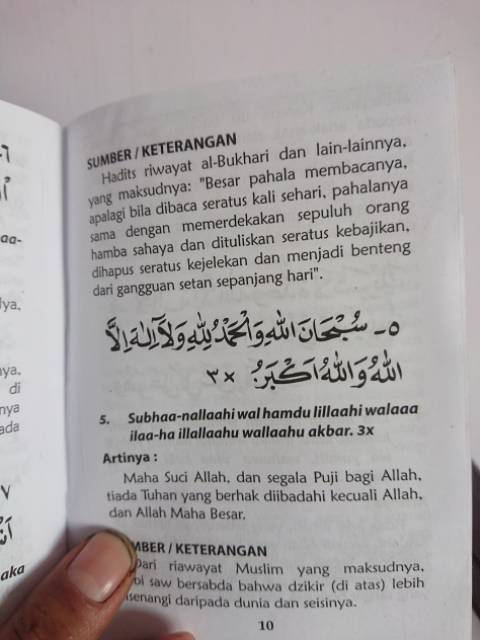 ٦-
aa-
lya,
nya.
di
nya
ada
٧
aka
SUMBER / KETERANGAN
Hadits riwayat al-Bukhari dan lain-lainnya,
yang maksudnya: "Besar pahala membacanya,
apalagi bila dibaca seratus kali sehari, pahalanya
sama dengan memerdekakan sepuluh orang
hamba sahaya dan dituliskan seratus kebajikan,
dihapus seratus kejelekan dan menjadi benteng
dari gangguan setan sepanjang hari".
٥- سُبْحَانَ اللهِ وَالْحَمْدُ لِلّٰهِ وَلَا اِلٰهَ اِلَّا
اللهُ وَاللهُ اَكْبَرُ: ×٣
5. Subhaa-nallaahi wal hamdu lillaahi walaaa
ilaa-ha illallaahu wallaahu akbar. 3x
Artinya :
Maha Suci Allah, dan segala Puji bagi Allah,
tiada Tuhan yang berhak diibadahi kecuali Allah,
dan Allah Maha Besar.
MBER / KETERANGAN
Dari riawayat Muslim yang maksudnya,
bi saw bersabda bahwa dzikir (di atas) lebih
senangi daripada dunia dan seisinya.
10